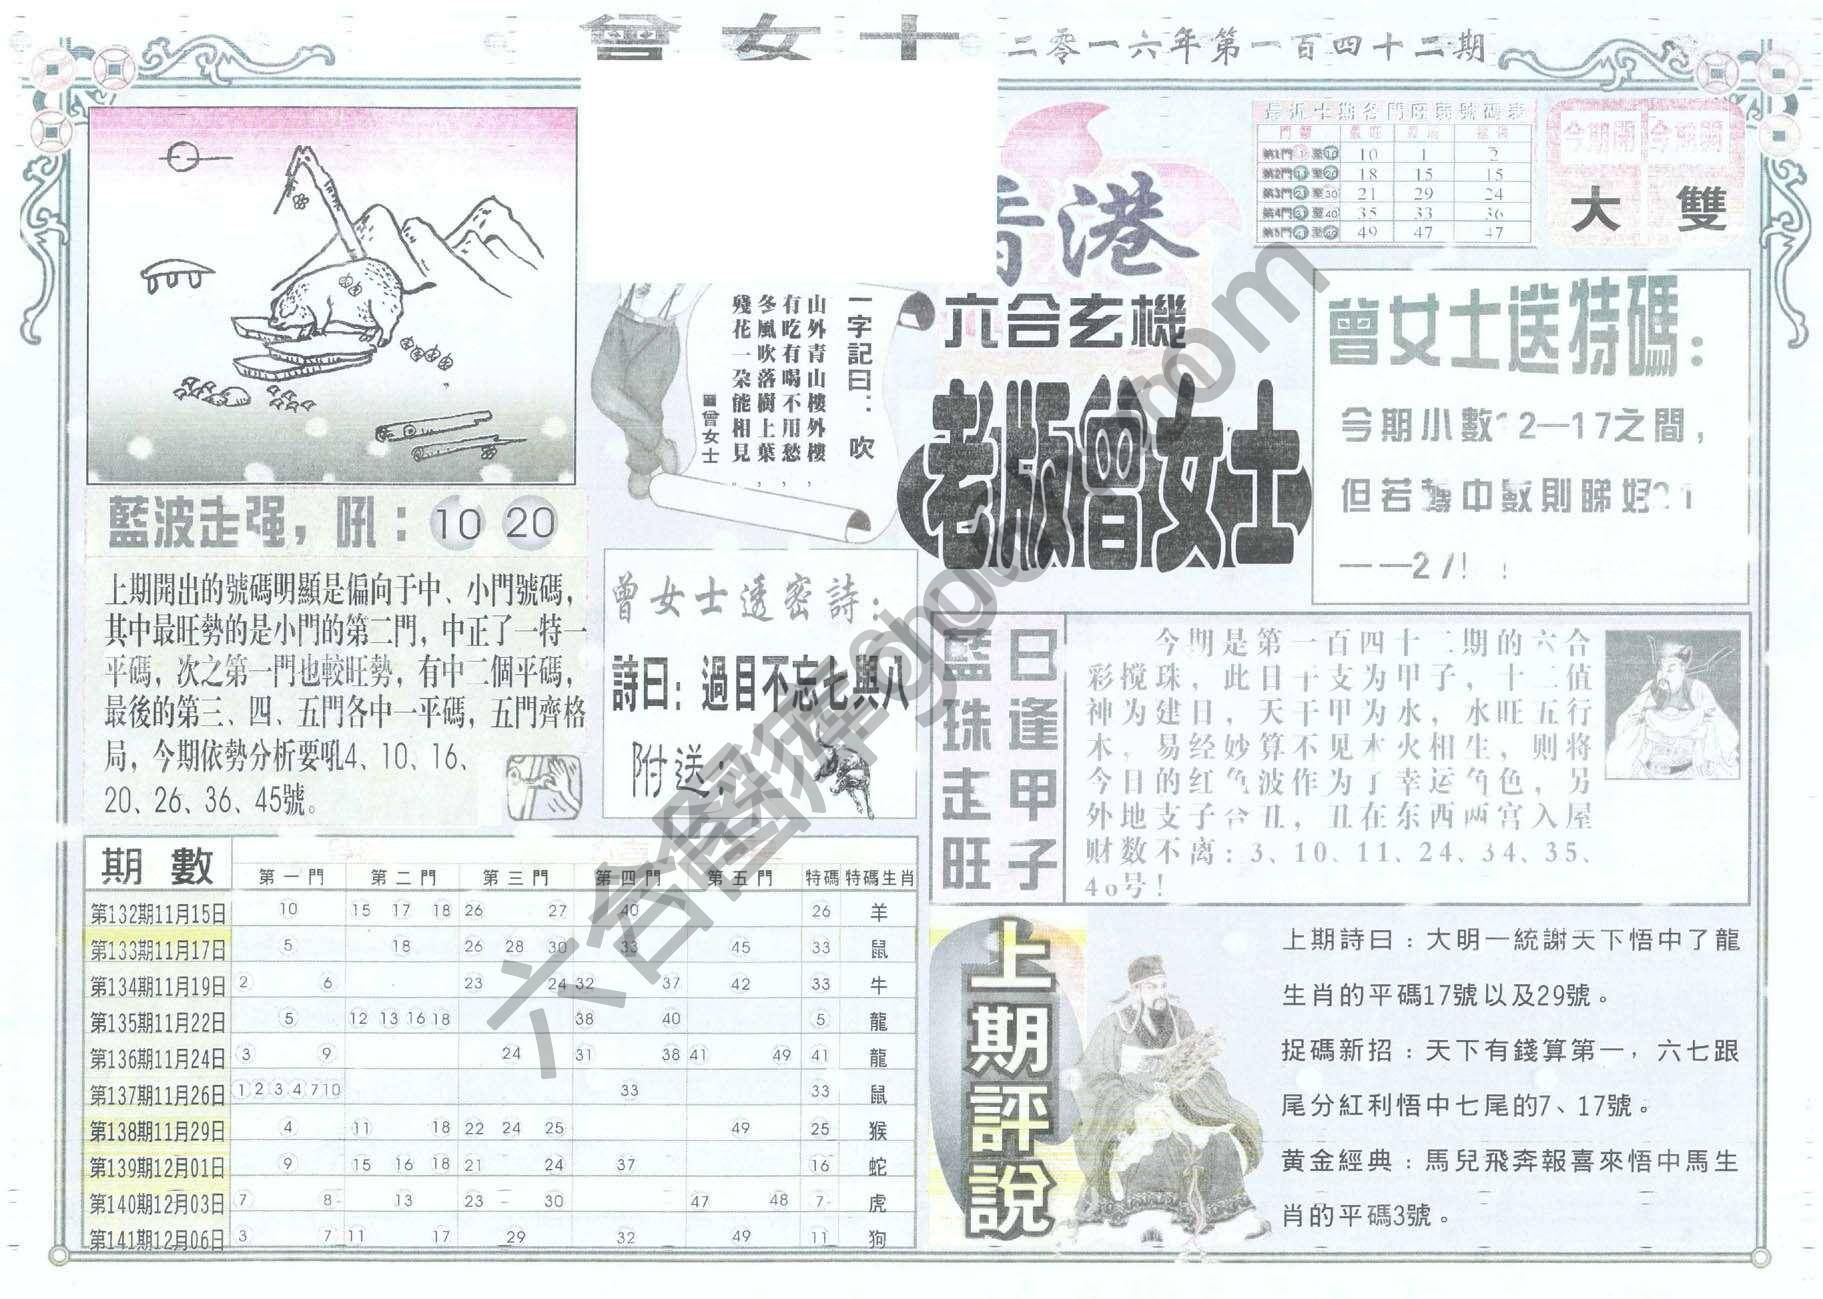 曾女士
二零一六年第一百四十二期
香港
六合玄機
老版曾女士
最近十期各門旺弱號碼表
第1門 1 至 10 10 1 2
第2門 11 至 20 18 15 15
第3門 21 至 30 21 29 24
第4門 31 至 40 35 33 36
第5門 41 至 49 47 47
今期開 今期開
大 雙
一字記曰：吹
山外青山樓外樓，
有吃有喝不用愁，
冬風吹落樹上葉，
殘花一朵能相見。
曾女士
曾女士送特碼：
今期小數12—17之間，
但若轉中數則睇好21
——27！
藍波走强，吼：10 20
上期開出的號碼明顯是偏向于中、小門號碼，
其中最旺勢的是小門的第二門，中正了一特一
平碼，次之第一門也較旺勢，有中二個平碼，
最後的第三、四、五門各中一平碼，五門齊格
局，今期依勢分析要吼4、10、16、
20、26、36、45號。
曾女士透密詩：
詩曰：過目不忘七與八
附送：
日逢甲子
藍珠走旺
今期是第一百四十二期的六合
彩搅珠，此日干支为甲子，十二值
神为建日，天干甲为水，水旺五行
木，易经妙算不见木火相生，则将
今日的红色波作为了幸运角色，另
外地支子合丑，丑在东西两宫入屋
财数不离：3、10、11、24、34、35、
46号！
期數 第一門 第二門 第三門 第四門 第五門 特碼 特碼生肖
第132期11月15日 10 15 17 18 26 27 40 26 羊
第133期11月17日 5 18 26 28 30 33 45 33 鼠
第134期11月19日 2 6 23 24 32 37 42 33 牛
第135期11月22日 5 12 13 16 18 38 40 5 龍
第136期11月24日 3 9 24 31 38 41 49 41 龍
第137期11月26日 1 2 3 4 7 10 33 33 鼠
第138期11月29日 4 11 18 22 24 25 49 25 猴
第139期12月01日 9 15 16 18 21 24 37 16 蛇
第140期12月03日 7 8 13 23 30 47 48 7 虎
第141期12月06日 3 7 11 17 29 32 49 11 狗
上期評說
上期詩曰：大明一統謝天下悟中了龍
生肖的平碼17號以及29號。
捉碼新招：天下有錢算第一，六七跟
尾分紅利悟中七尾的7、17號。
黃金經典：馬兒飛奔報喜來悟中馬生
肖的平碼3號。